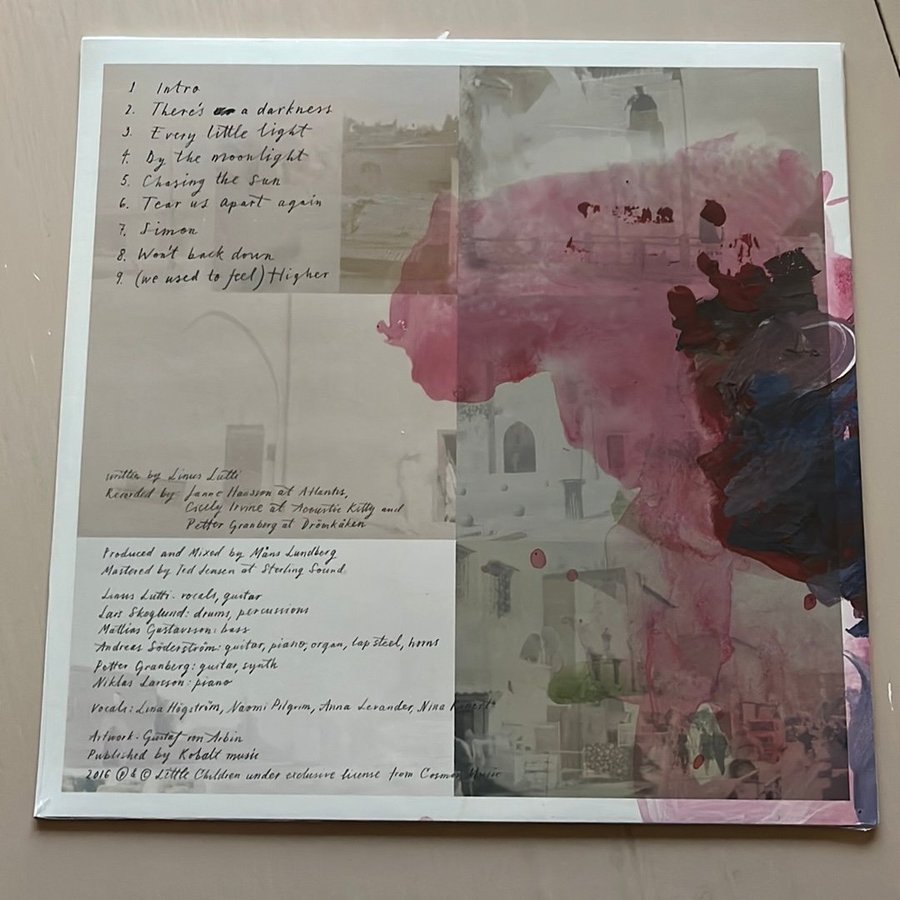 1. Intro
2. There's a darkness
3. Every little light
4. By the moonlight
5. Chasing the sun
6. Tear us apart again
7. Simon
8. Won't back down
9. (we used to feel) Higher
written by Linus Lutti
Recorded by: Janne Hansson at Atlantis,
Cicely Irvine at Acoustic Kitty and
Petter Granberg at Drömkåken
Produced and Mixed by Måns Lundberg
Mastered by Ted Jensen at Sterling Sound
Linus Lutti - vocals, guitar
Lars Skoglund: drums, percussions
Mattias Gustavsson: bass
Andreas Söderström: guitar, piano, organ, lap steel, horns
Petter Granberg: guitar, synth
Niklas Larsson: piano
Vocals: Lina Högström, Naomi Pilgrim, Anna Levander, Nina
Artwork - Gustaf von Arbin
Published by Kobalt music
2016 ℗ & © Little Children under exclusive license from Cosmos Music